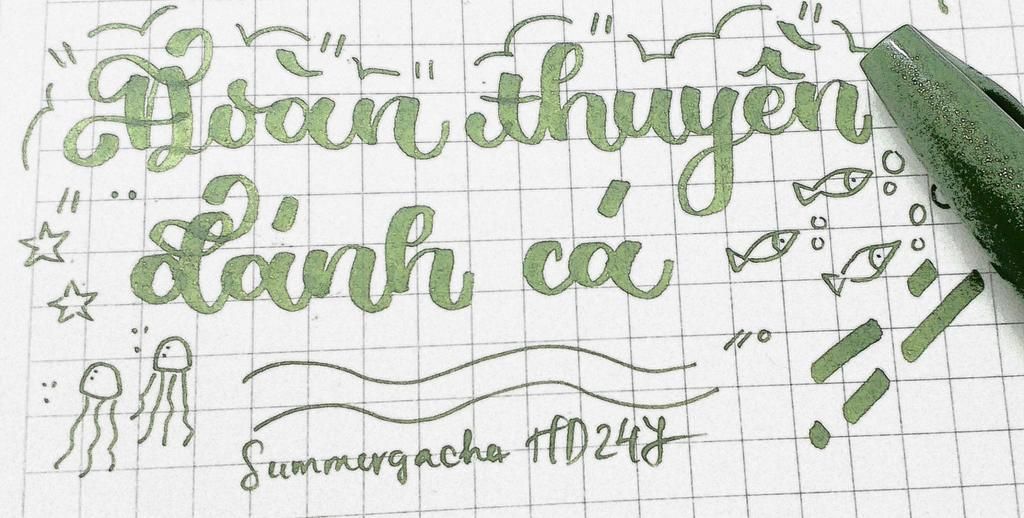 Đoàn thuyền
đánh cá
Summergacha HD24Y